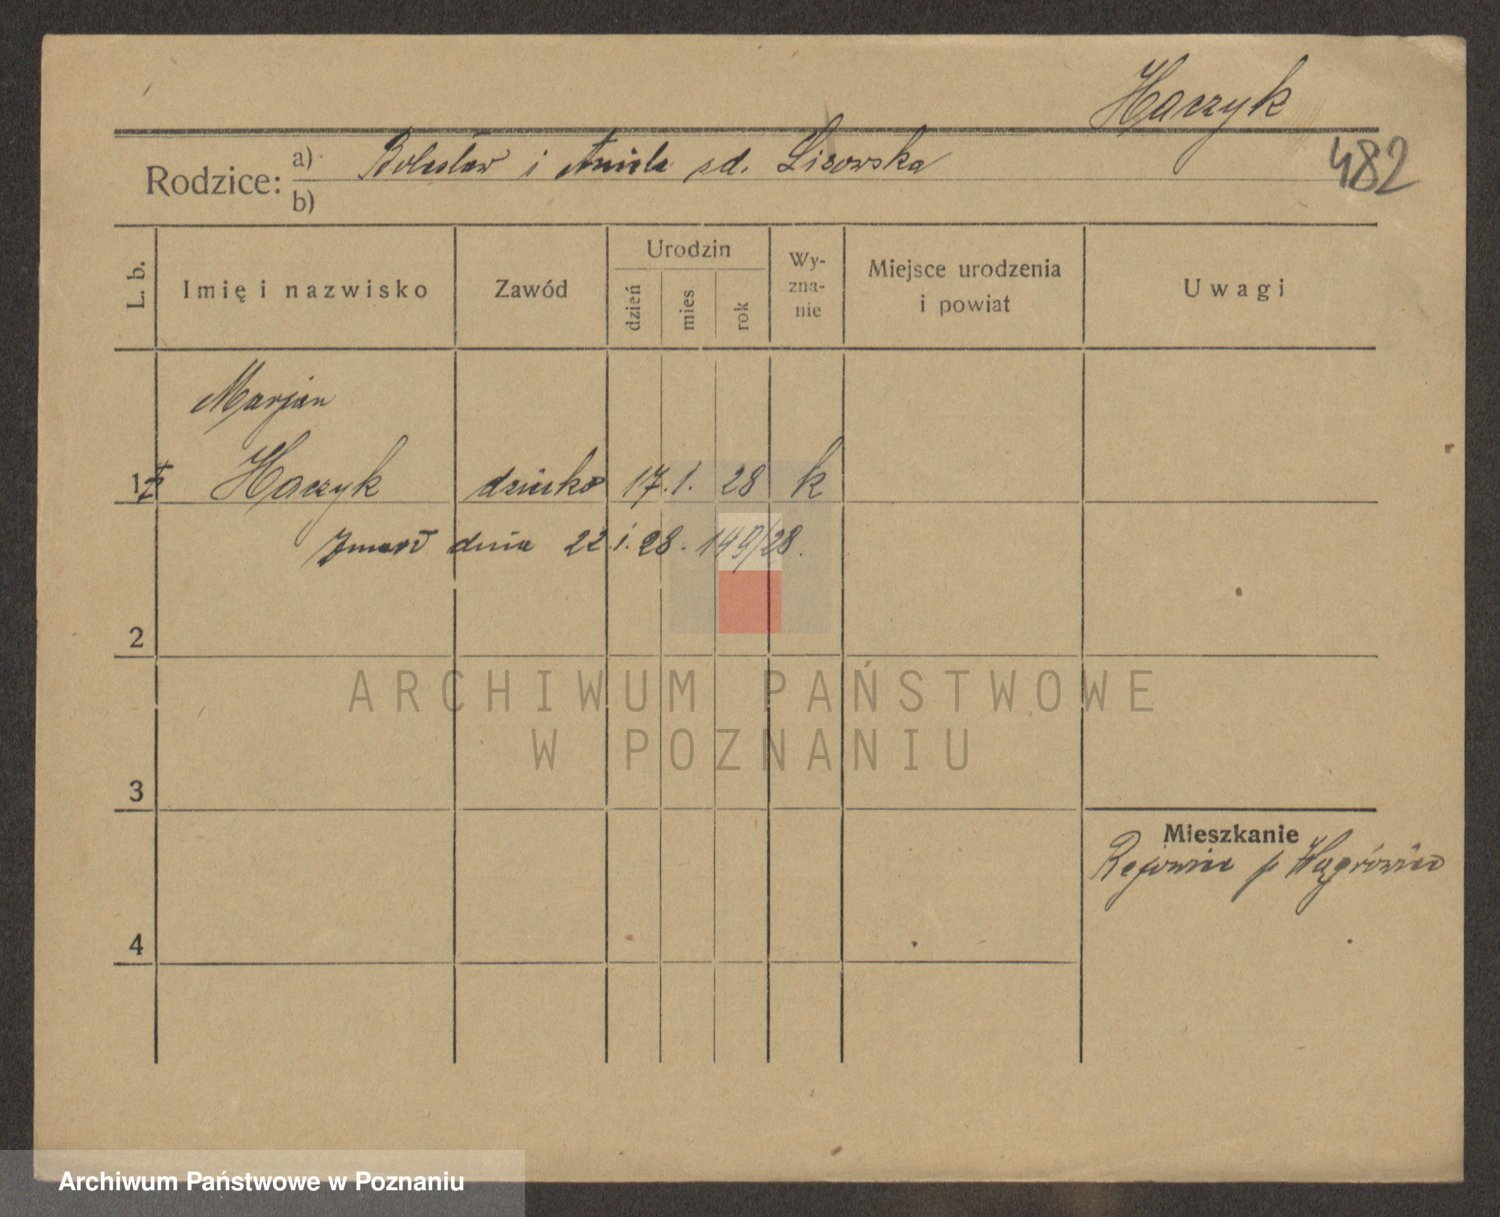 Haczyk
482
Rodzice: a) Bolesław i Aniela zd. Lisowska
b)
L. b. Imię i nazwisko Zawód Urodzin dzień mies rok Wy-zna-nie Miejsce urodzenia i powiat Uwagi
Marjan
1 Haczyk dziecko 17. 1. 28 k
Zmarł dnia 22 1. 28. 149/28.
2
ARCHIWUM PAŃSTWOWE
W POZNANIU
3
Mieszkanie
p Wągrówiec
4
Archiwum Państwowe w Poznaniu